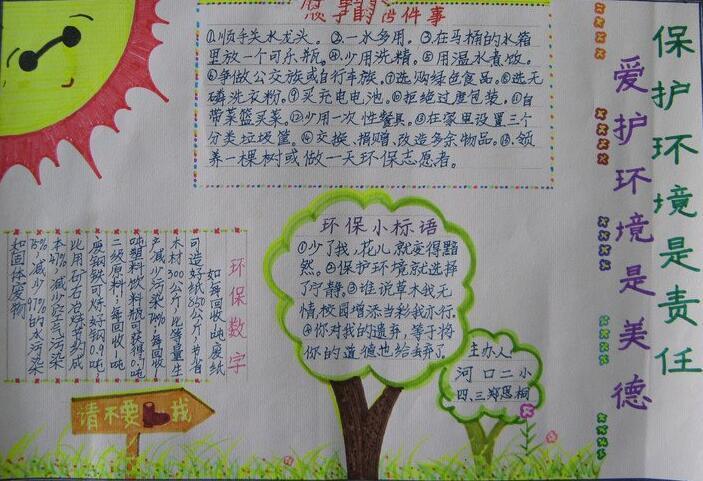 件事
①顺手关水龙头。②一水多用。③在马桶的水箱
里放一个可乐瓶。④少用洗精。⑤用温水煮饭。
⑥争做公交族或自行车族。⑦选购绿色食品。⑧选无
磷洗衣粉。⑨买充电电池。⑩拒绝过度包装。⑪自
带菜篮买菜。⑫少用一次性餐具。⑬在家里设置三个
分类垃圾筐。⑭交换、捐赠、改造多余物品。⑮领
养一棵树或做一天环保志愿者。
保护环境是责任
爱护环境是美德
环保数字
如每回收1吨废纸
可造好纸850公斤,节省
木材300公斤,比等量生
产减少污染74%,每回收1
吨塑料饮料瓶可获得0.7吨
二级原料;每回收1吨
废钢铁可炼好钢0.9吨
比用矿石冶炼节约成
本47%,减少空气污染
75%,减少97%的水污染
和固体废物
环保小标语
①少了我,花儿就变得黯
然。②保护环境就选择
了宁静。③谁说草木我无
情,校园增添当彩我亦行.
④你对我的遗弃,等于将
你的道德也给丢弃了
主办人
河口二小
四、三郑恩桐
请不要
我